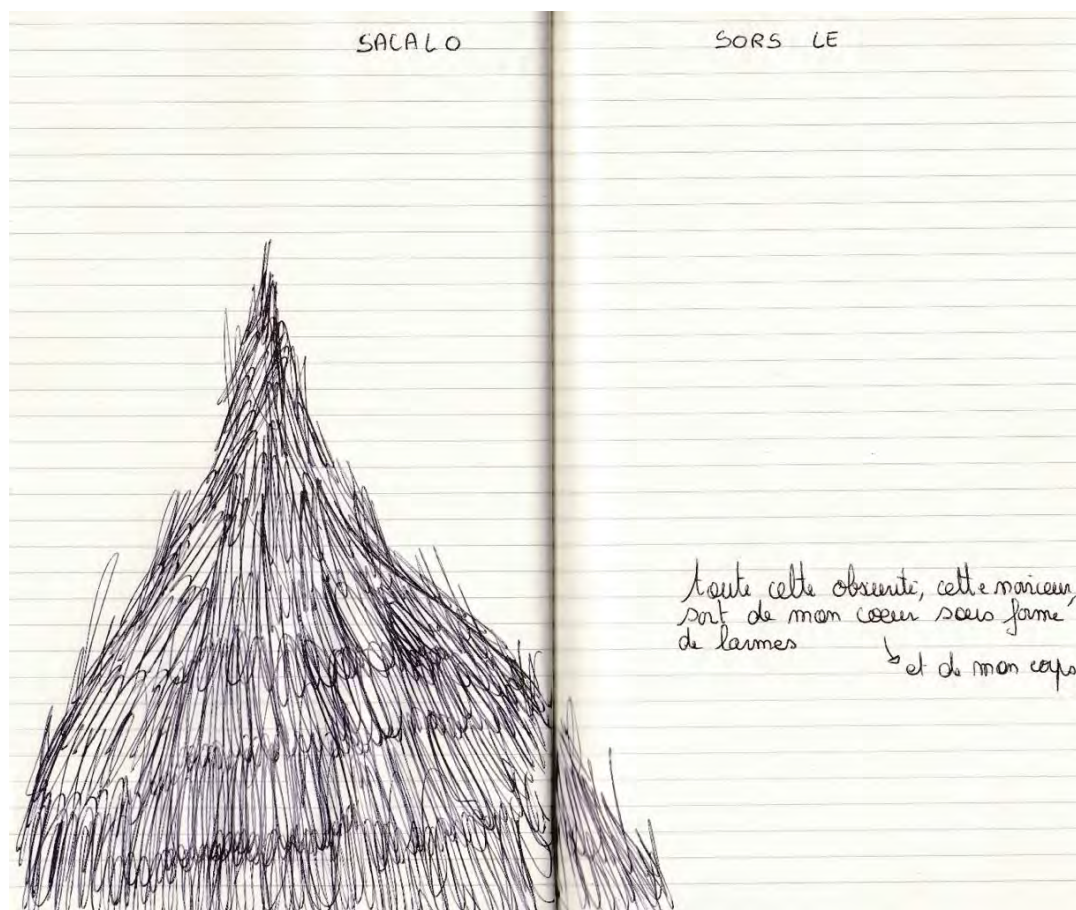 SACALO
SORS LE
toute cette obscurité, cette noirceur,
sort de mon coeur sous forme
de larmes
↳ et de mon corps